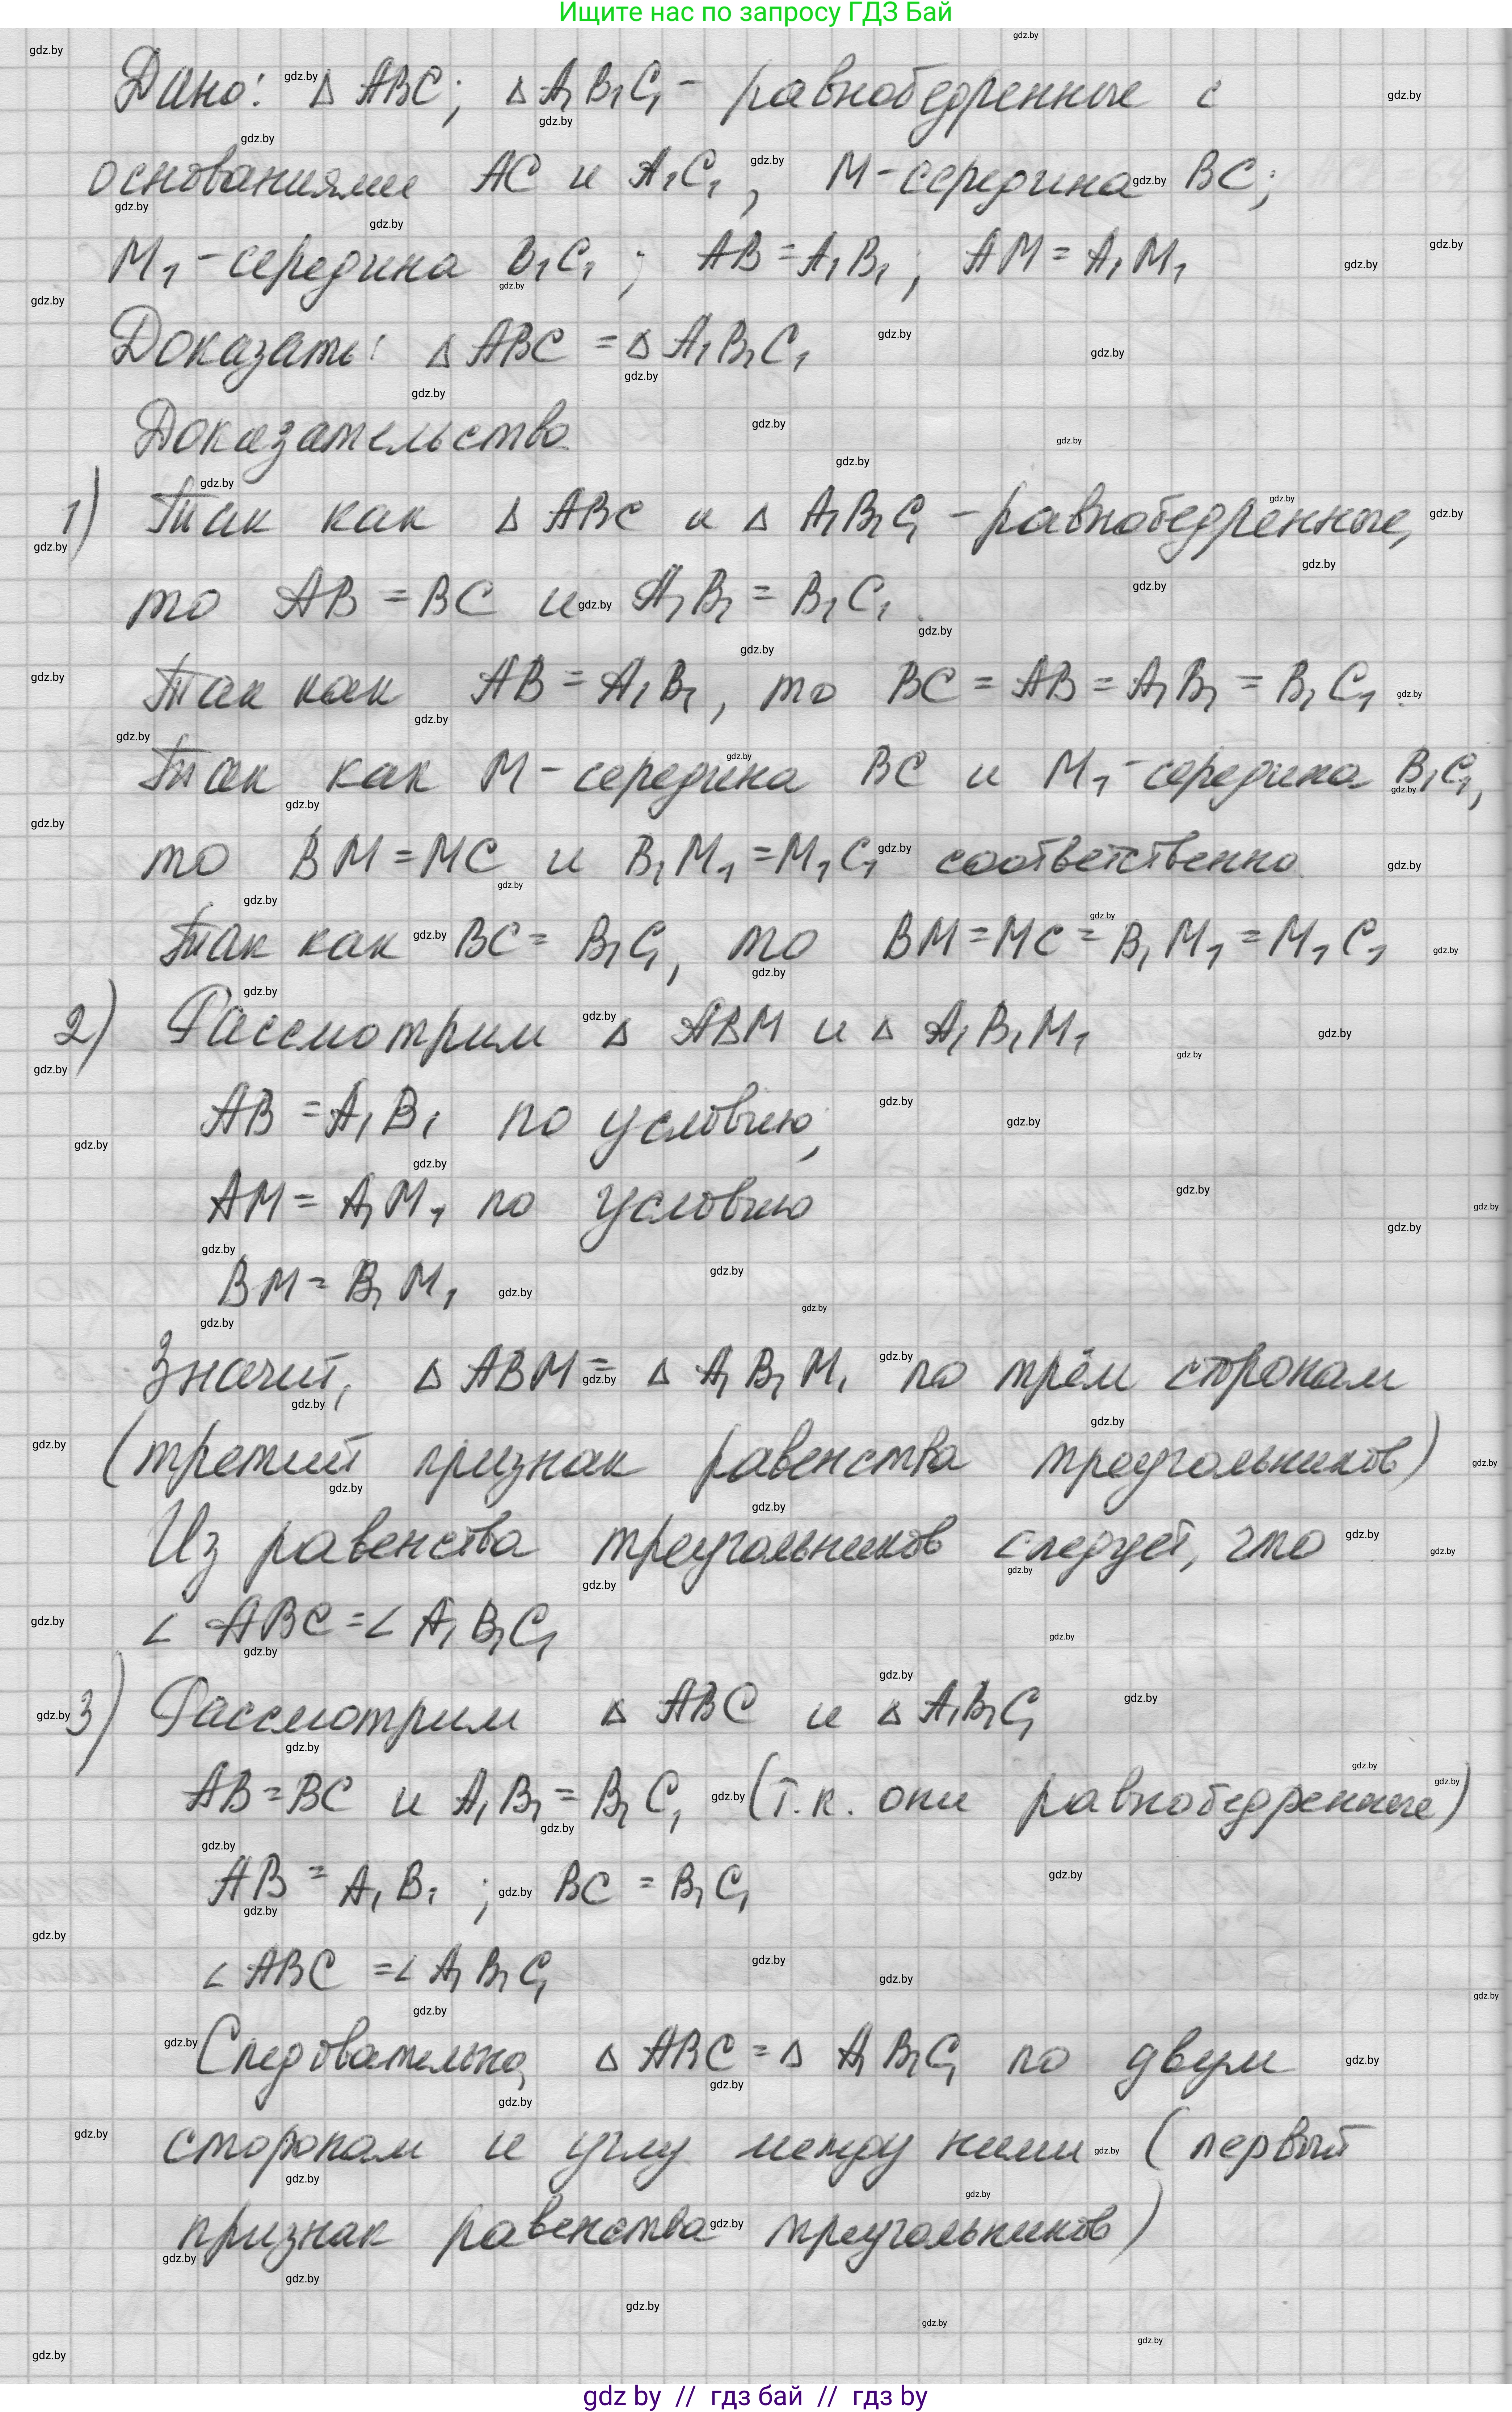 Ищите нас по запросу ГДЗ Бай
Дано: Δ ABC; Δ A₁B₁C₁ - равнобедренные с
основаниями AC и A₁C₁, M - середина BC;
M₁ - середина B₁C₁; AB = A₁B₁; AM = A₁M₁
Доказать: Δ ABC = Δ A₁B₁C₁
Доказательство
1) Так как Δ ABC и Δ A₁B₁C₁ - равнобедренные,
то AB = BC и A₁B₁ = B₁C₁.
Так как AB = A₁B₁, то BC = AB = A₁B₁ = B₁C₁.
Так как M - середина BC и M₁ - середина B₁C₁,
то BM = MC и B₁M₁ = M₁C₁ соответственно.
Так как BC = B₁C₁, то BM = MC = B₁M₁ = M₁C₁
2) Рассмотрим Δ ABM и Δ A₁B₁M₁
AB = A₁B₁ по условию,
AM = A₁M₁ по условию
BM = B₁M₁
Значит, Δ ABM = Δ A₁B₁M₁ по трём сторонам
(третий признак равенства треугольников)
Из равенства треугольников следует, что
∠ ABC = ∠ A₁B₁C₁
3) Рассмотрим Δ ABC и Δ A₁B₁C₁
AB = BC и A₁B₁ = B₁C₁ (т.к. они равнобедренные)
AB = A₁B₁; BC = B₁C₁
∠ ABC = ∠ A₁B₁C₁
Следовательно, Δ ABC = Δ A₁B₁C₁ по двум
сторонам и углу между ними (первый
признак равенства треугольников)
gdz by // гдз бай // гдз by